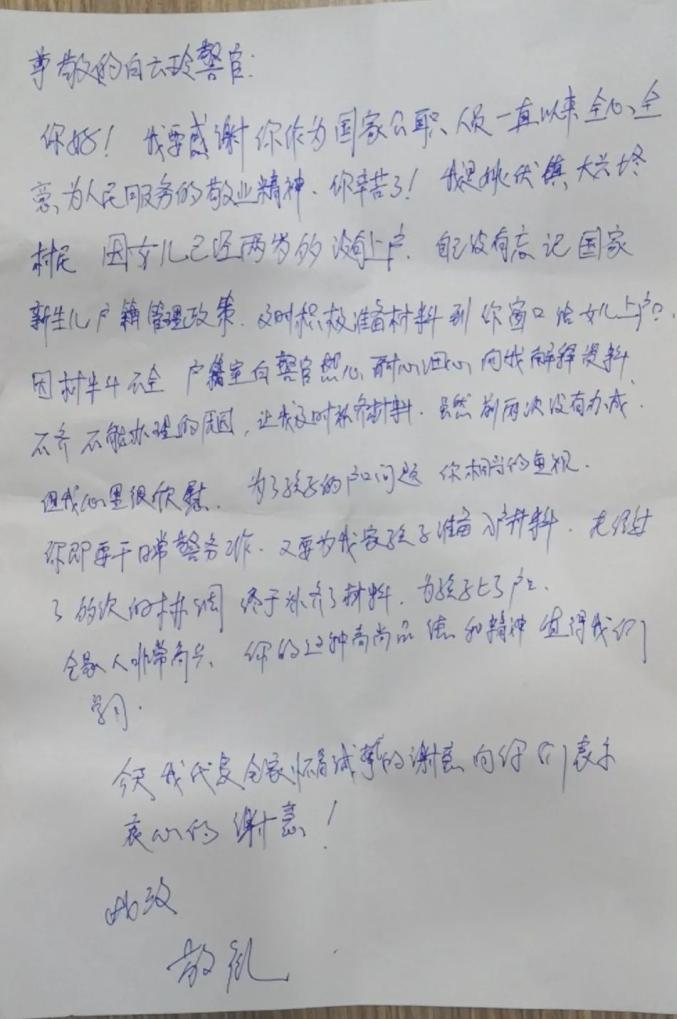 尊敬的白云玲警官:
你好! 我要感谢你作为国家公职人员一直以来全心全
意为人民服务的敬业精神、你辛苦了! 我是姚伏镇大兴墩
村民 因女儿已经两岁的没有上户. 自己没有忘记国家
新生儿户籍管理政策. 及时积极准备材料到你窗口给女儿上户口.
因材料不全 户籍室白警官热心 耐心细心向我解释资料
不齐不能办理的原因, 让我及时补齐材料. 虽然前两次没有办成.
但我心里很欣慰. 为了孩子的户口问题 你相当的重视.
你即要干日常警务工作. 又要为我家孩子准备入户材料.
了 次的 终于补齐了材料. 为孩子上了户口.
全家人非常高兴、你的这种高尚品德和精神值得我们
学习.
今天我代表全家怀着诚挚的谢意向你们表示
衷心的谢意!
此致
敬礼